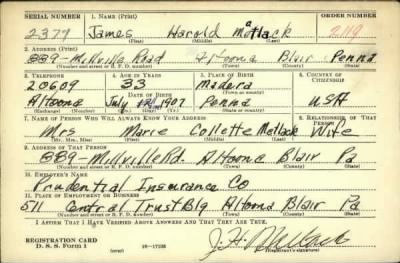 SERIAL NUMBER 1. NAME (Print) ORDER NUMBER
2379 James Harold Matlack 2119
(First) (Middle) (Last)
2. ADDRESS (Print)
339-Millville Road Altoona Blair Penna
(Number and street or R. F. D. number) (Town) (County) (State)
3. TELEPHONE 4. AGE IN YEARS 5. PLACE OF BIRTH 6. COUNTRY OF CITIZENSHIP
20609 33 Madera
DATE OF BIRTH
Altoona July 1907 Penna USA
(Exchange) (Number) (Mo.) (Day) (Yr.) (State or country)
7. NAME OF PERSON WHO WILL ALWAYS KNOW YOUR ADDRESS 8. RELATIONSHIP OF THAT PERSON
Mrs Marie Collette Matlack Wife
(Mr., Mrs., Miss) (First) (Middle) (Last)
9. ADDRESS OF THAT PERSON
339-Millville Rd. Altoona Blair Pa
(Number and street or R. F. D. number) (Town) (County) (State)
10. EMPLOYER'S NAME
Prudential Insurance Co
11. PLACE OF EMPLOYMENT OR BUSINESS
511 Central Trust Blg Altoona Blair Pa
(Number and street or R. F. D. number) (Town) (County) (State)
I AFFIRM THAT I HAVE VERIFIED ABOVE ANSWERS AND THAT THEY ARE TRUE.
REGISTRATION CARD
D. S. S. Form 1 (over) 16-17105 J. H. Matlack
(Registrant's signature)